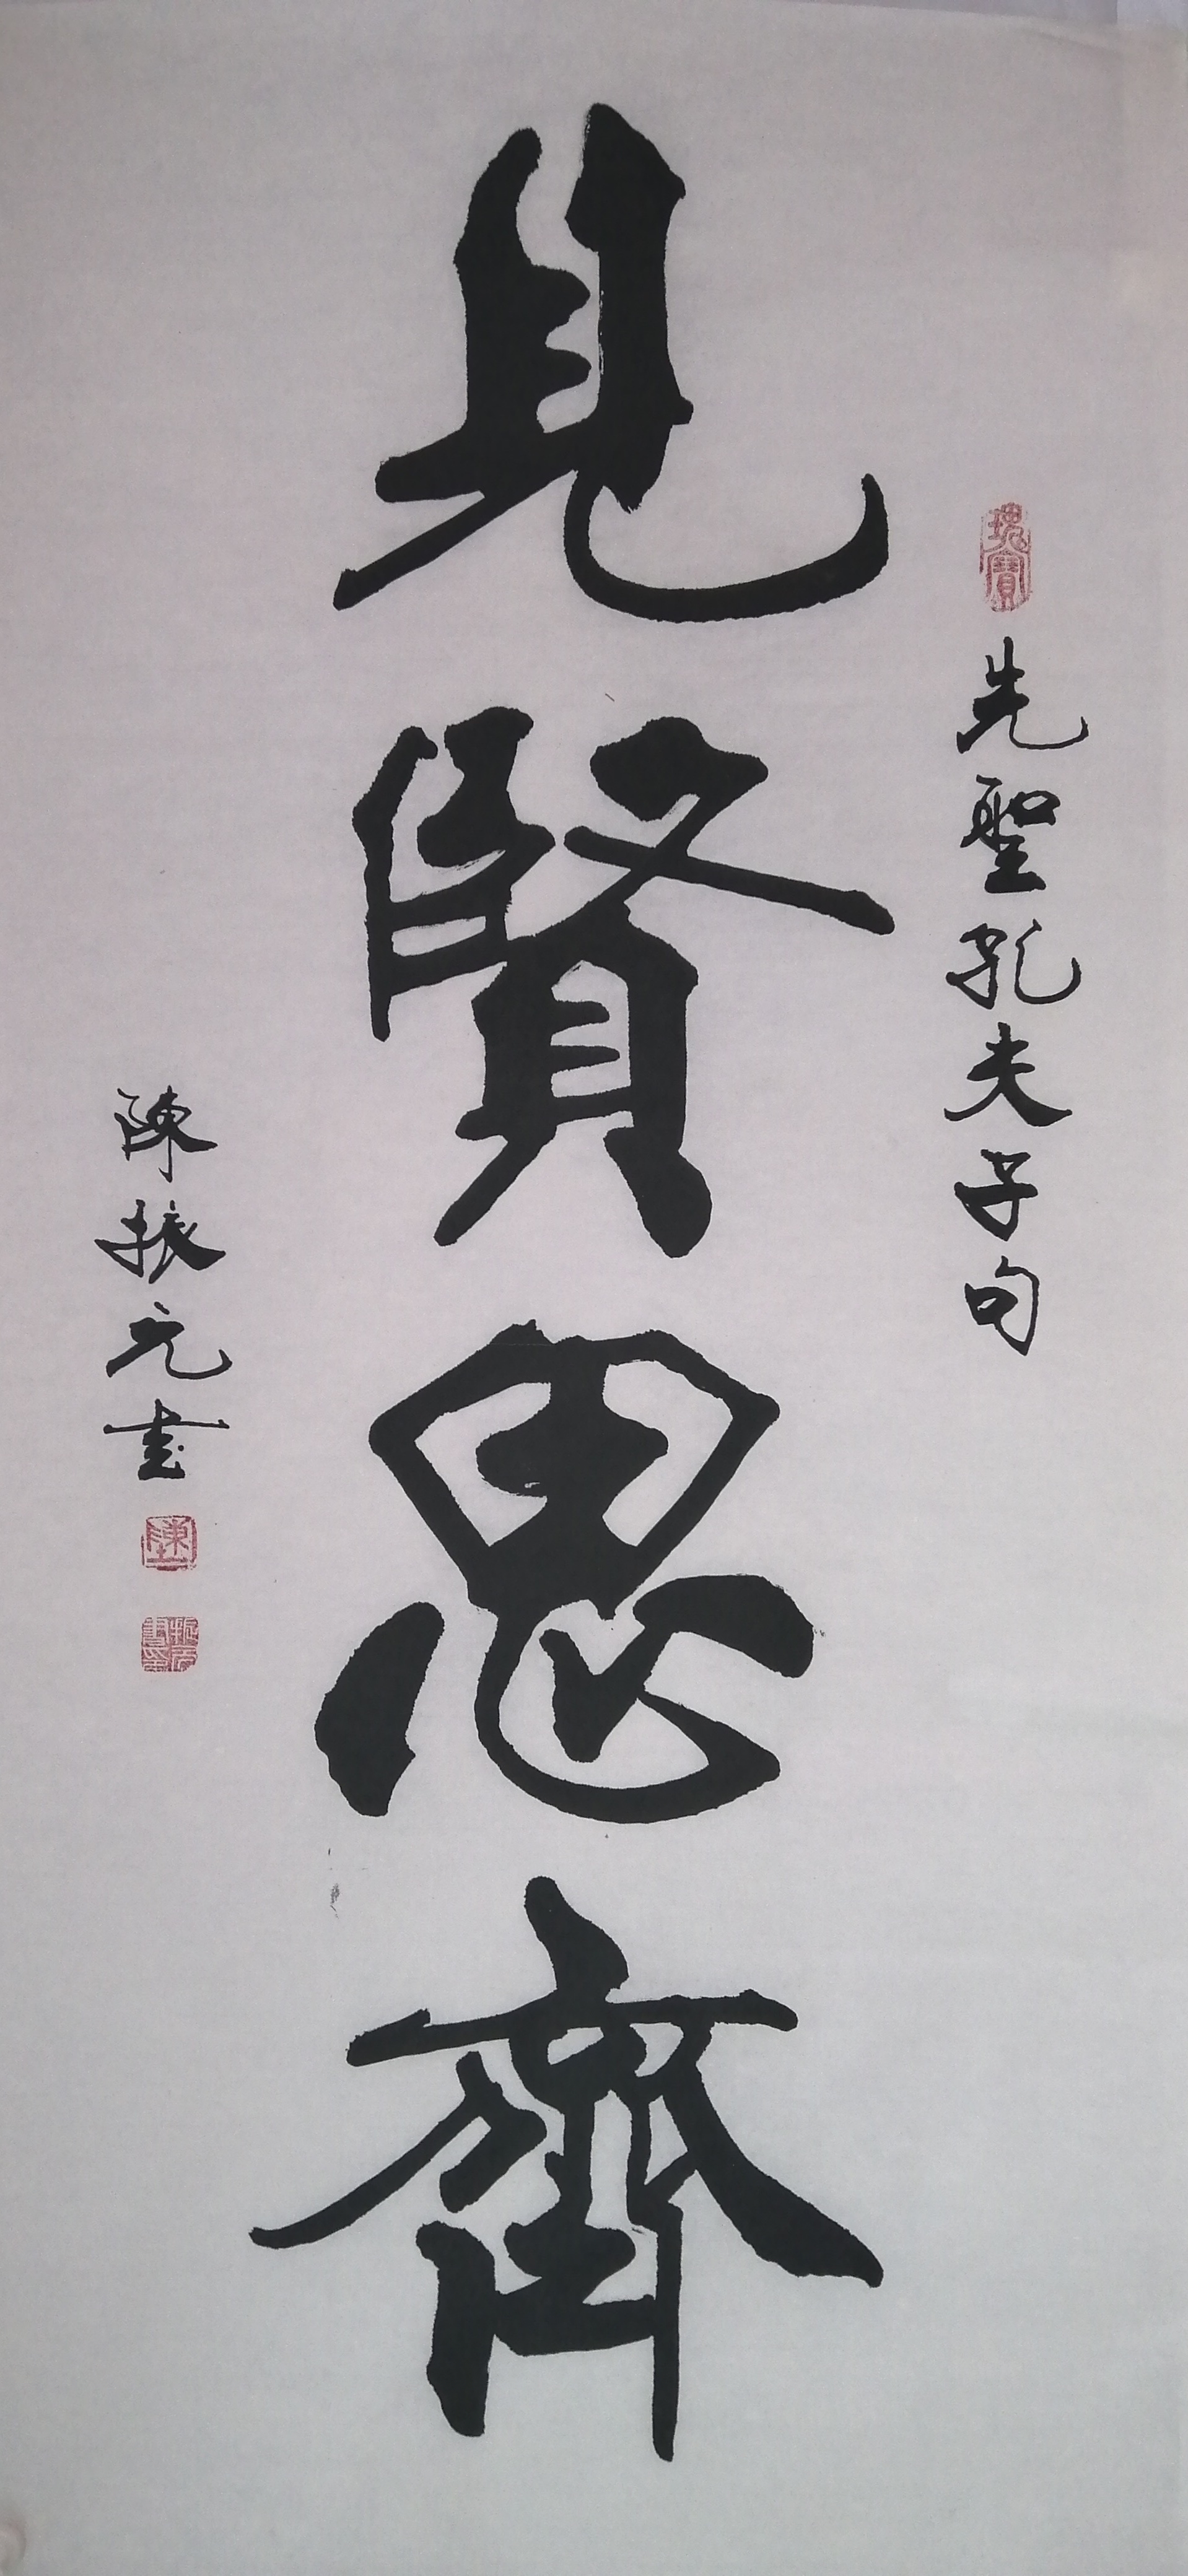 瑰寶
先聖孔夫子句
見賢思齊
陳振元書
陳
振元書印